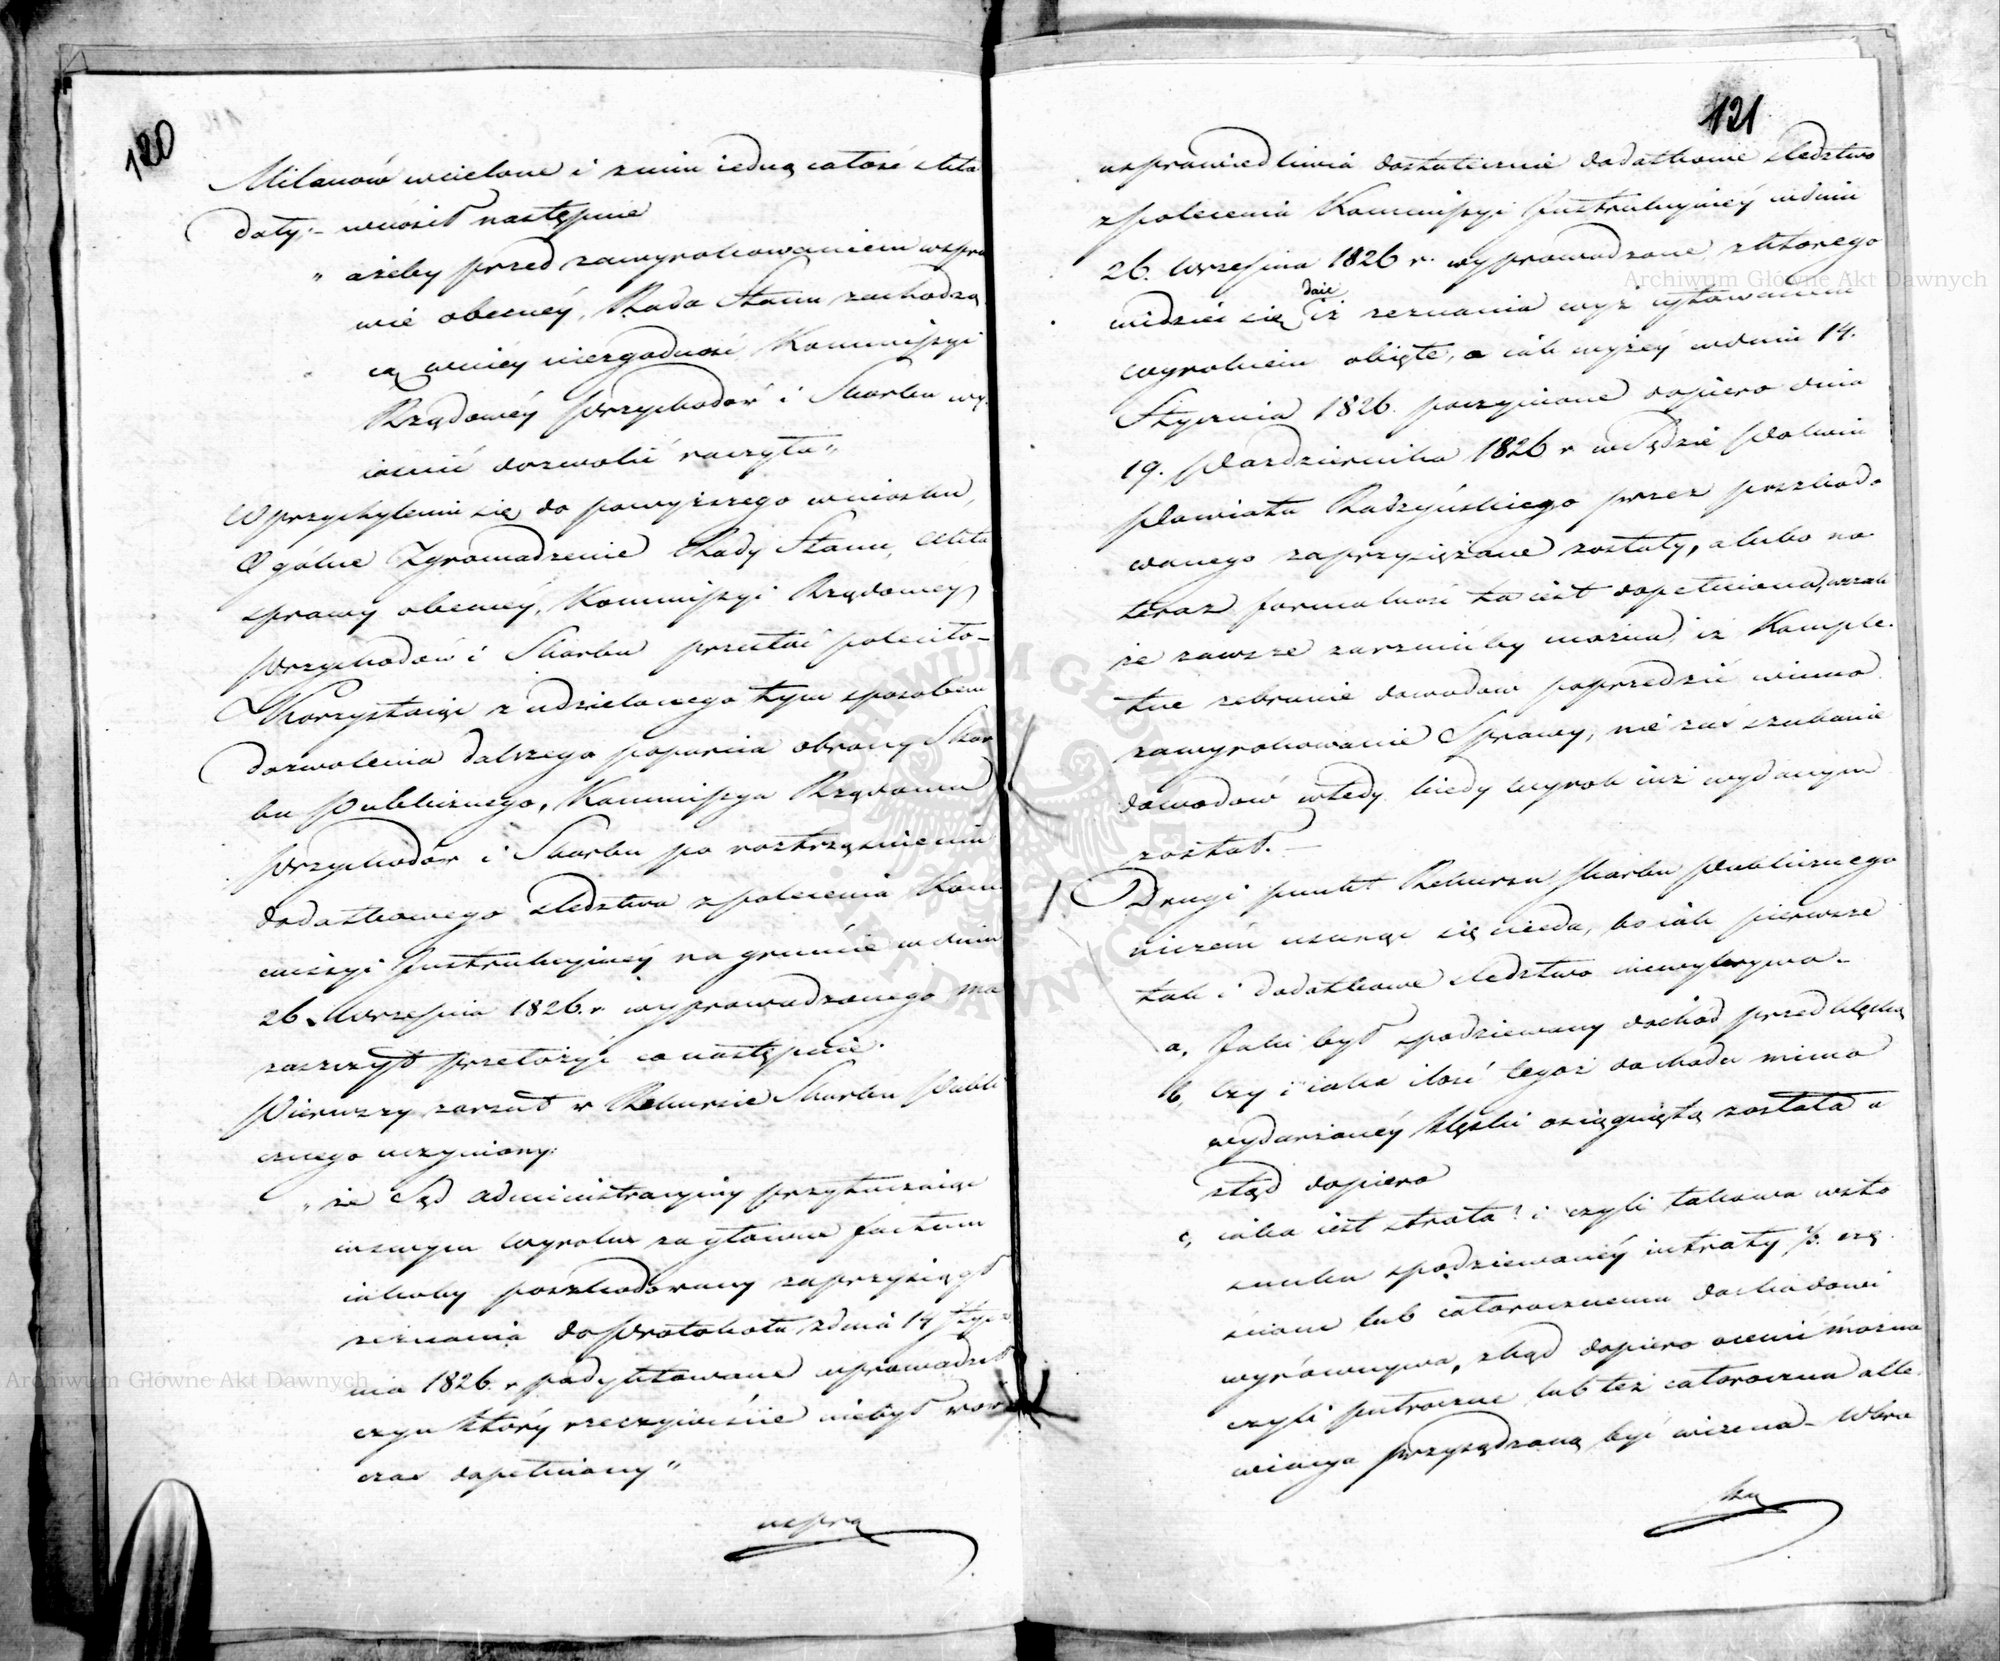 120
Milanów wcielone i z nim iedną całość skła
dały;- wnosił następnie
„ ażeby przed zawyrokowaniem w spra
wie obecnéy, Rada Stanu zachodzą
cą w niéy niezgodność Kommissyi
Rządowéy Przychodów i Skarbu wy
iaśnić dozwolić raczyła„
W przychyleniu się do powyższego wniosku,
Ogólne Zgromadzenie Rady Stanu, Akta
sprawy obecnéy, Kommissyi Rządowéy
Przychodów i Skarbu przesłać poleciło-
Korzystaiąc z udzielonego tym sposobem
dozwolenia dalszego poparcia obrony Skar
bu Publicznego, Kommissya Rządowa
Przychodów i Skarbu po roztrząśnieniu
dodatkowego śledztwa z polecenia Kom
missyi Instrukcyinéy na gruncie w dniu
26. Września 1826. r. wyprowadzonego ma
zaszczyt przełożyć co następuie.
Pierwszy zarzut w Rekursie Skarbu Publi
cznego uczyniony:
„ że Sąd administracyiny przytaczaiąc
w swym Wyroku za główne factum
iakoby poszkodowany zaprzysiągł
zeznania do Protokołu z dnia 14 Stycz
nia 1826. r podyktowane wprowadził
czyn który rzeczywiście niebył wow
czas dopełniony„
uspra
121
usprawiedliwia dostatecznie dodatkowe śledztwo
z polecenia Kommissyi Instrukcyinéy w dniu
26. Września 1826 r. wyprowadzone, z którego
widzieć się daie iż zeznania wyż cytowanem
wyrokiem obięte, a iak wyżéy w dniu 14.
Stycznia 1826. poczynione dopiero dnia
19. Października 1826 r w Sądzie Pokoiu
Powiatu Radzyńskiego przez poszkodo
wanego zaprzysiężone zostały, a lubo na
teraz formalność ta iest dopełniona, wszak
że zawsze zarzucićby można, iż Komple-
tne zebranie dowodów poprzedzić winno
zawyrokowanie Sprawy, nie zaś szukanie
dowodów wtedy kiedy Wyrok iuż wydanym
został.-
Drugi punkt Rekursu Skarbu Publicznego
niczem usunąć się nieda, bo iak pierwsze
tak i dodatkowe śledztwo niewykrywa-
a, Jaki był spodziewany dochód przed klęską
b, Czy i iaka ilość tegoż dochodu mimo
wydarzonéy klęski osiągniętą została a
ztąd dopiero
c, iaka iest strata? i czyli takowa w sto
sunku spodziewanéy intraty ½. czę
ściom lub całorocznemu dochodowi
wyrównywa, zkąd dopiero ocenić można
czyli półroczna lub też całoroczna alle
wiacya przysądzoną być winna- W bra
ku
Archiwum Główne Akt Dawnych
Archiwum Główne Akt Dawnych
ARCHIWUM GŁÓWNE AKT DAWNYCH